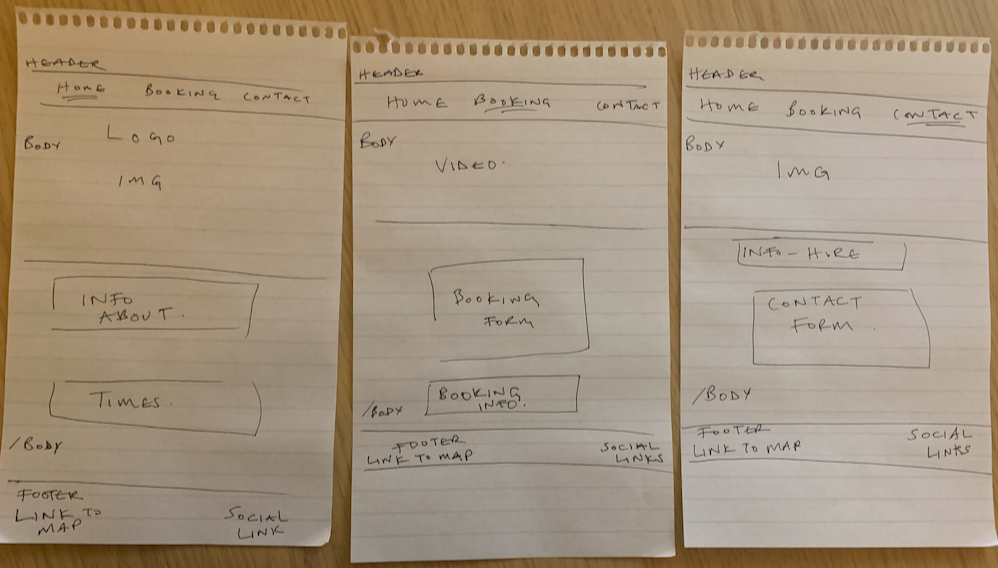 HEADER
HOME BOOKING CONTACT
BODY
LOGO
IMG
INFO
ABOUT.
TIMES.
/BODY
FOOTER
LINK TO
MAP
SOCIAL
LINK
HEADER
HOME BOOKING CONTACT
BODY
VIDEO.
BOOKING
FORM
BOOKING
INFO.
/BODY
FOOTER
LINK TO MAP
SOCIAL
LINKS
HEADER
HOME BOOKING CONTACT
BODY
IMG
INFO - HIRE
CONTACT
FORM.
/BODY
FOOTER
LINK TO MAP
SOCIAL
LINKS